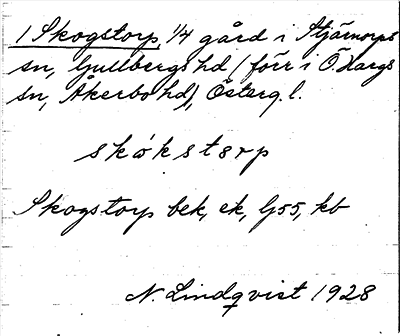 1 Skogstorp, 1/4 gård i Stjärnorps
sn, Gullbergs hd (förr i Ö. Hargs
sn, Åkerbo hd), Österg. l.
skókstərp
Skogstorp bek, ek, Gj55, kb
N. Lindqvist 1928